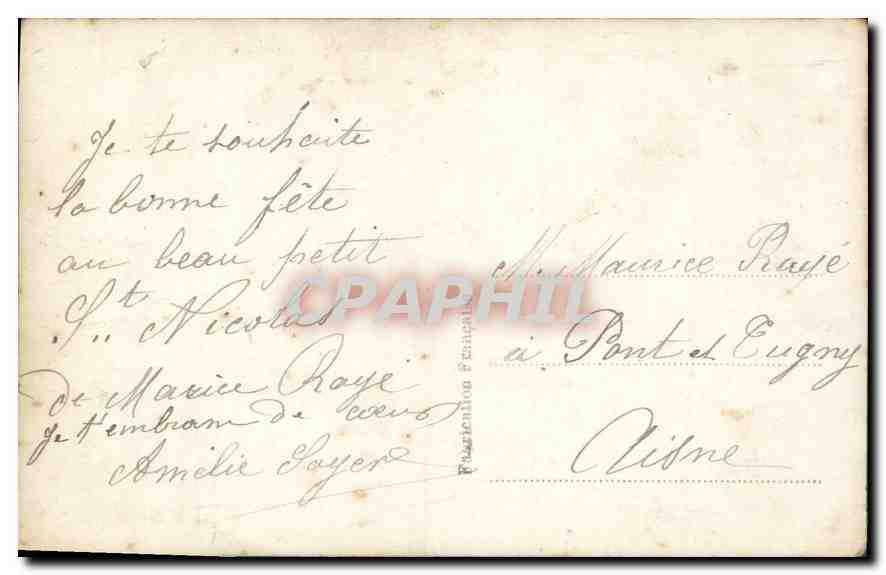 Je te souhaite
la bonne fête
au beau petit
St Nicolas
de Marice Rayé
je t'embrass de cœur
Amélie Soyer
CPAPHIL
Fabrication Française
M. Maurice Rayé
à Pont et Tugny
Aisne